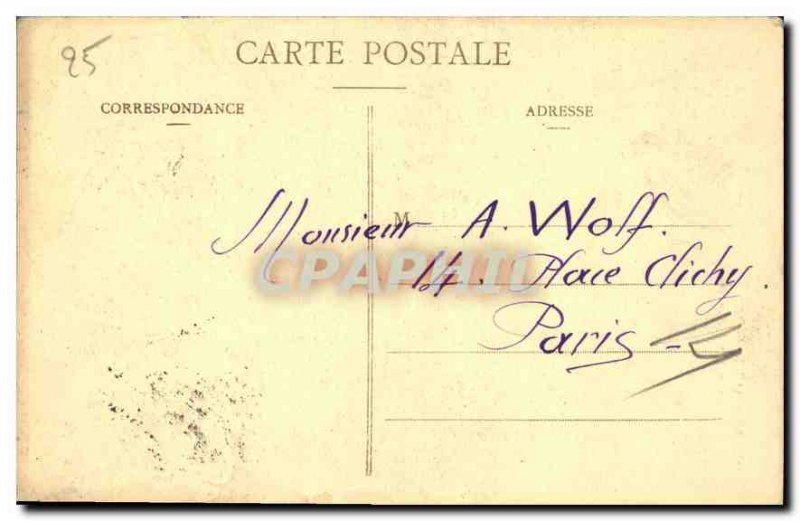 95
CARTE POSTALE
CORRESPONDANCE
ADRESSE
M
Monsieur A. Wolf.
14. Place Clichy.
Paris
CPAPHIL